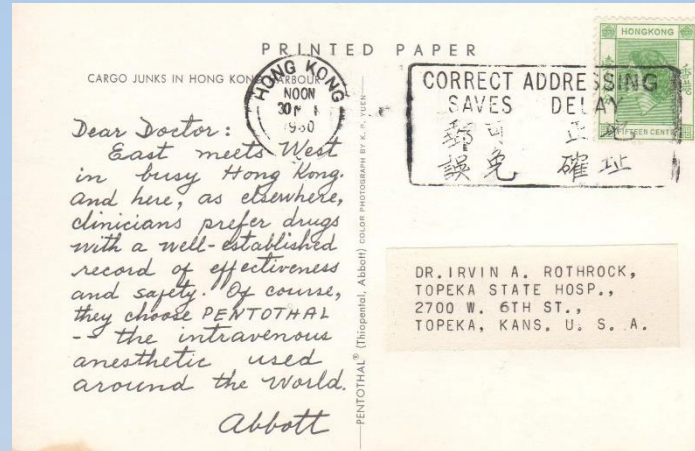 PRINTED PAPER
CARGO JUNKS IN HONG KONG HARBOUR
HONG KONG
NOON
30
1960
CORRECT ADDRESSING
SAVES DELAY
郵 正 地
誤免 確址
HONGKONG
FIFTEEN CENTS
Dear Doctor:
East meets West
in busy Hong Kong.
And here, as elsewhere,
clinicians prefer drugs
with a well-established
record of effectiveness
and safety. Of course,
they choose PENTOTHAL
-- the intravenous
anesthetic used
around the world.
Abbott
PENTOTHAL® (Thiopental, Abbott) COLOR PHOTOGRAPH BY K. P. YUEN
DR. IRVIN A. ROTHROCK,
TOPEKA STATE HOSP.,
2700 W. 6TH ST.,
TOPEKA, KANS. U. S. A.